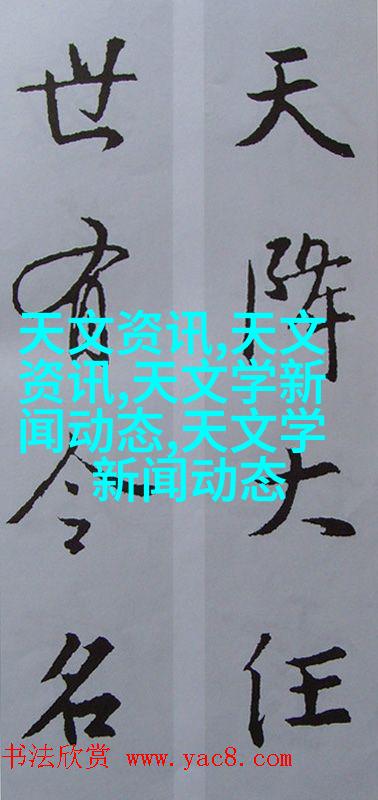 天降大任
世有令名
天文资讯,天文
资讯,天文学新
闻动态,天文学
新闻动态
书法欣赏 www.yac8.com